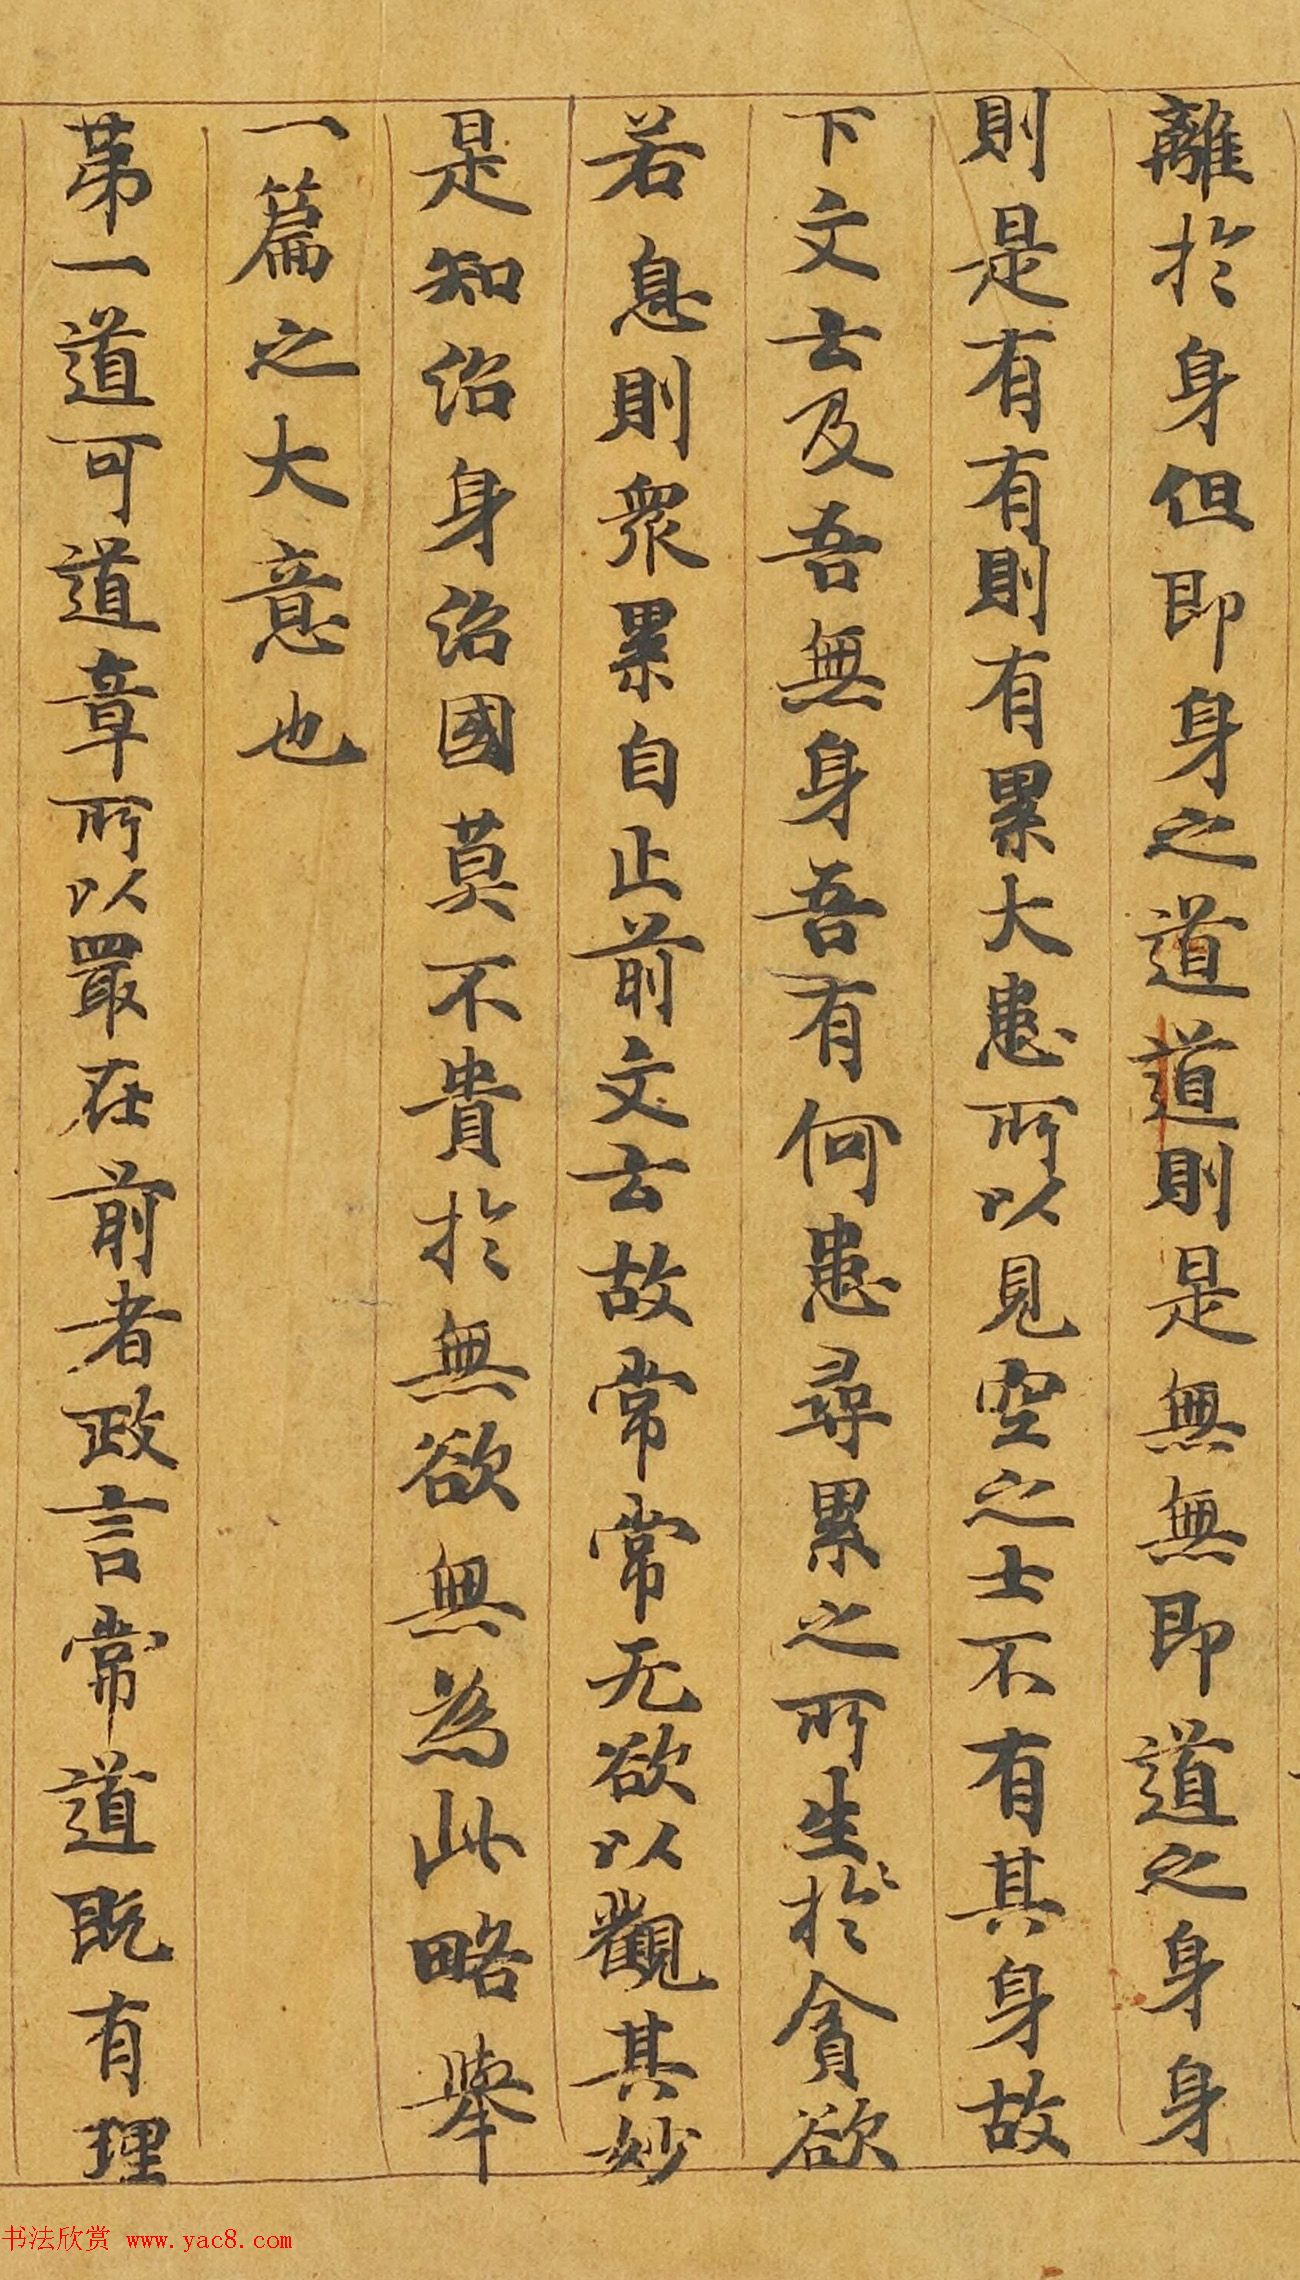 離於身但即身之道道則是無無即道之身身
則是有有則有累大患所以見空之士不有其身故
下文云及吾無身吾有何患尋累之所生於貪欲
若息則衆累自止前文云故常常无欲以觀其妙
是知治身治國莫不貴於無欲無為此略舉
一篇之大意也
苐一道可道章所以冣在前者政言常道既有理
书法欣赏 www.yac8.com